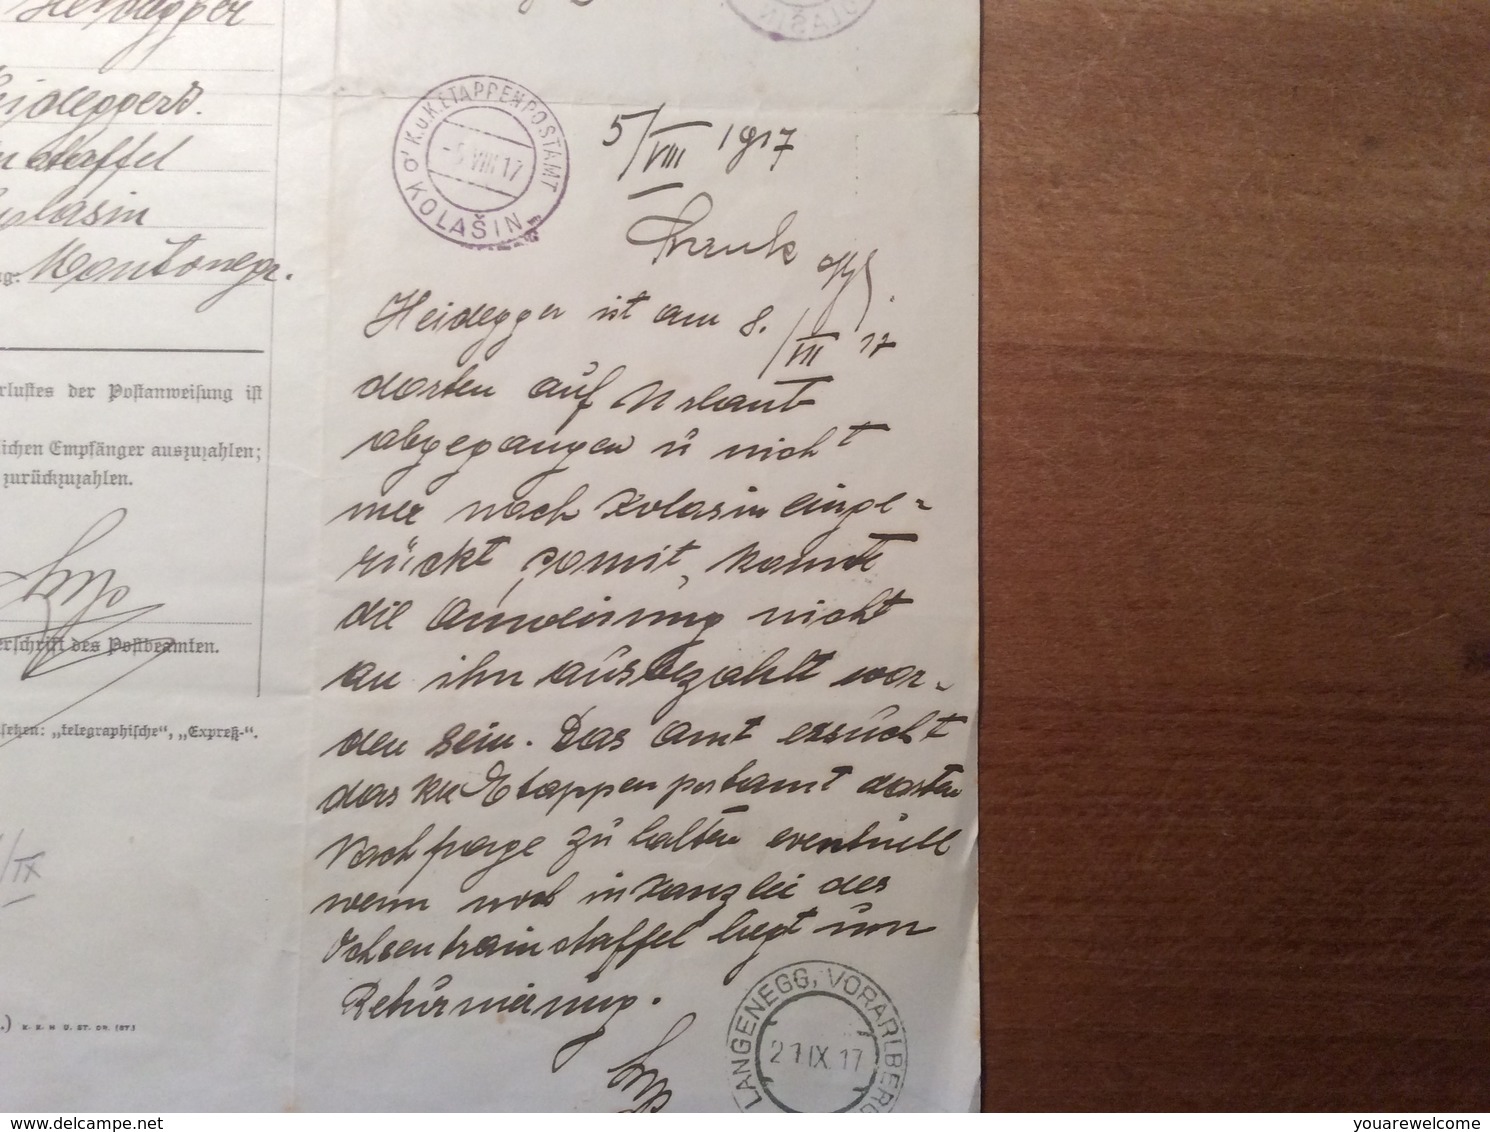 Heidegger
Heideggers.
staffel
Kolasin
ng: Montenegr.
erlustes der Postanweisung ist
lichen Empfänger auszuzahlen;
zurückzuzahlen.
erschrift des Postbeamten.
setzen: „telegraphische“, „Expreß-“.
/IX
K.u.K. ETAPPENPOSTAMT
VIII 17
KOLAŠIN
5/VIII 1917
Heidegger ist am 8./VII 17
dorten auf Urlaub
abgegangen ü nicht
mer nach Kolasin einge=
rückt somit, konnte
die Anweisung nicht
an ihn ausbezahlt wor=
den sein. Das Amt ersucht
das kk Etappenpostamt dorten
Nachfrage zu halten eventuell
wenn noch in Kanzlei des
Ochsentrainstaffel liegt um
Retürnierung.
LANGENEGG, VORARLBERG
21 IX. 17
youarewelcome